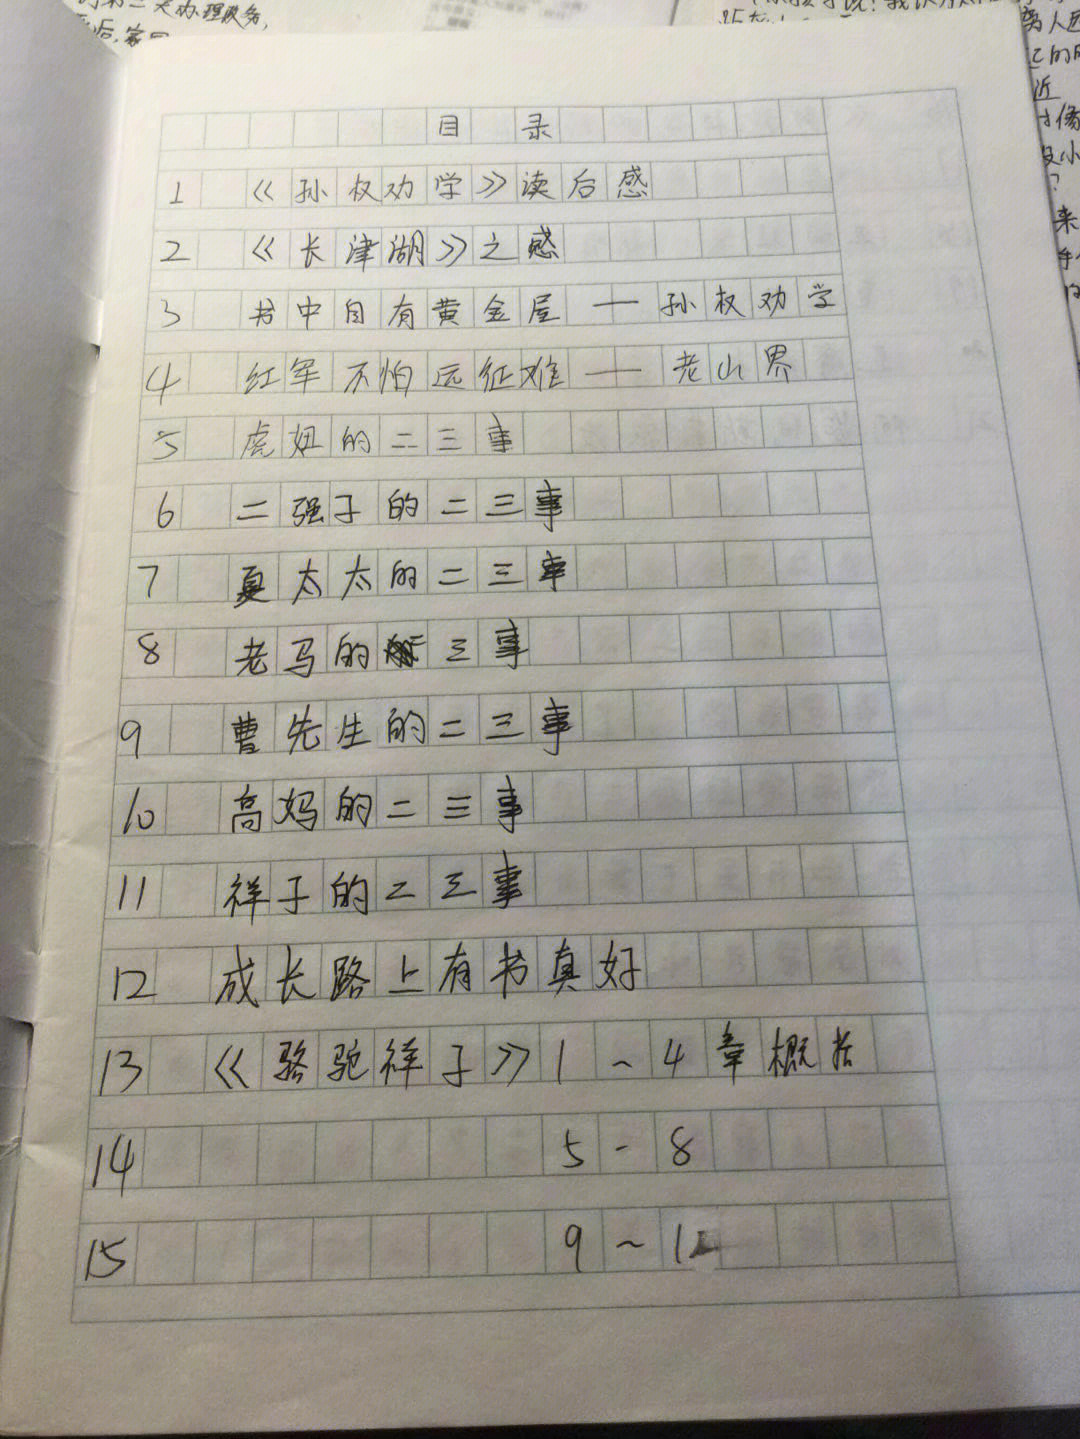 目录
1 《孙权劝学》读后感
2 《长津湖》之感
3 书中自有黄金屋 — 孙权劝学
4 红军不怕远征难 — 老山界
5 虎妞的二三事
6 二强子的二三事
7 夏太太的二三事
8 老马的三事
9 曹先生的二三事
10 高妈的二三事
11 祥子的二三事
12 成长路上有书真好
13 《骆驼祥子》1~4章概括
14 5-8
15 9~1